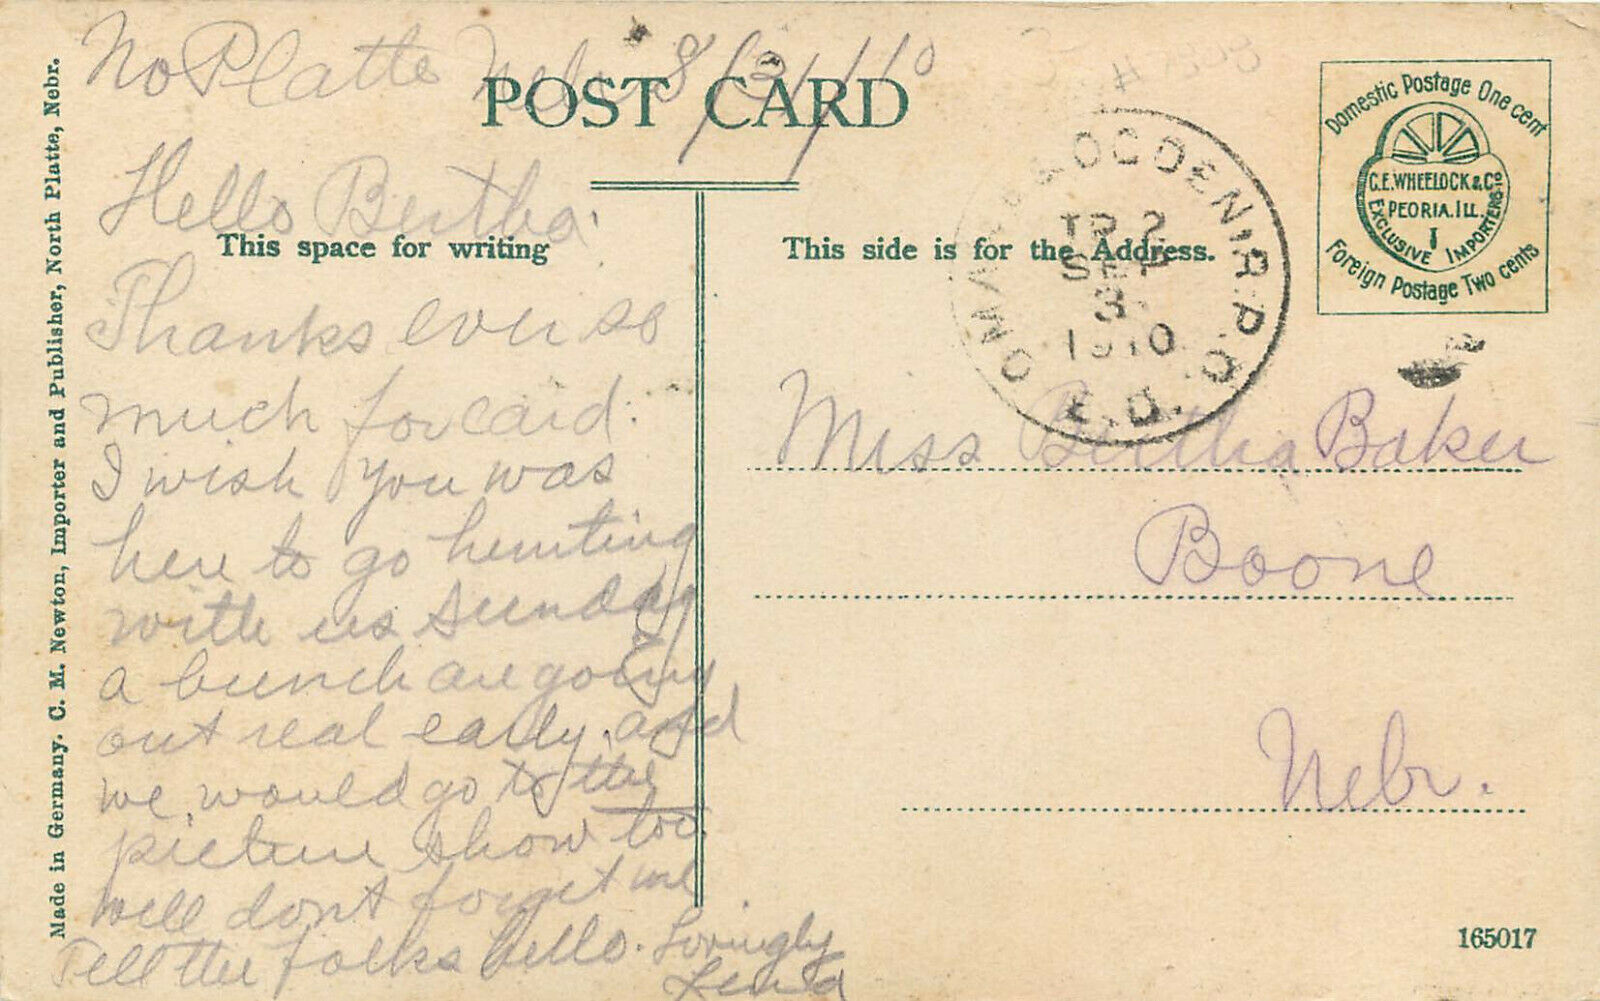 No Platte Neb. 8/31/10
POST CARD
Hello Bertha.
This space for writing
Thanks ever so
much for card.
I wish you was
here to go hunting
with us Sunday
a bunch are going
out real early. and
we would go to the
picture show too.
well dont forget me
Tell the folks hello. Lovingly
Made in Germany. C. M. Newton, Importer and Publisher, North Platte, Nebr.
This side is for the Address.
OMAHA & OGDEN R.P.O.
TR. 2
SEP
3
1910
E.D.
Domestic Postage One cent
C.E. WHEELOCK & Co
PEORIA. ILL.
EXCLUSIVE IMPORTERS
Foreign Postage Two cents
Miss Bertha Baker
Boone
Nebr.
165017